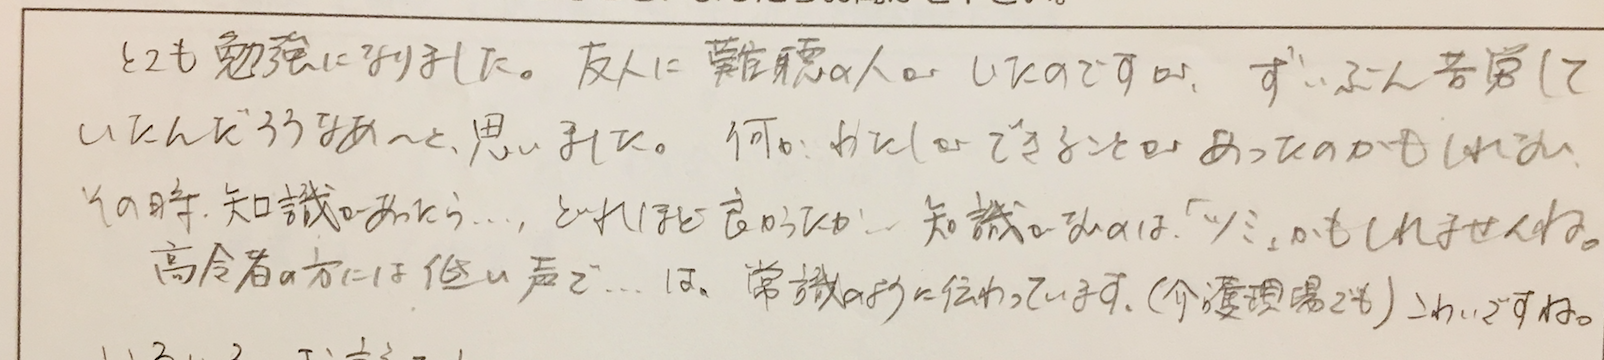 とても勉強になりました。友人に難聴の人が いたのですが、ずいぶん苦労して
いたんだろうなあ〜と、思いました。何か わたしが できることが あったのかもしれない、
その時、知識があったら…、どれほど良かったか… 知識がないのは、「ツミ」かもしれませんね。
高令者の方には低い声で…は、常識のように伝わっています、(介護現場でも)こわいですね。